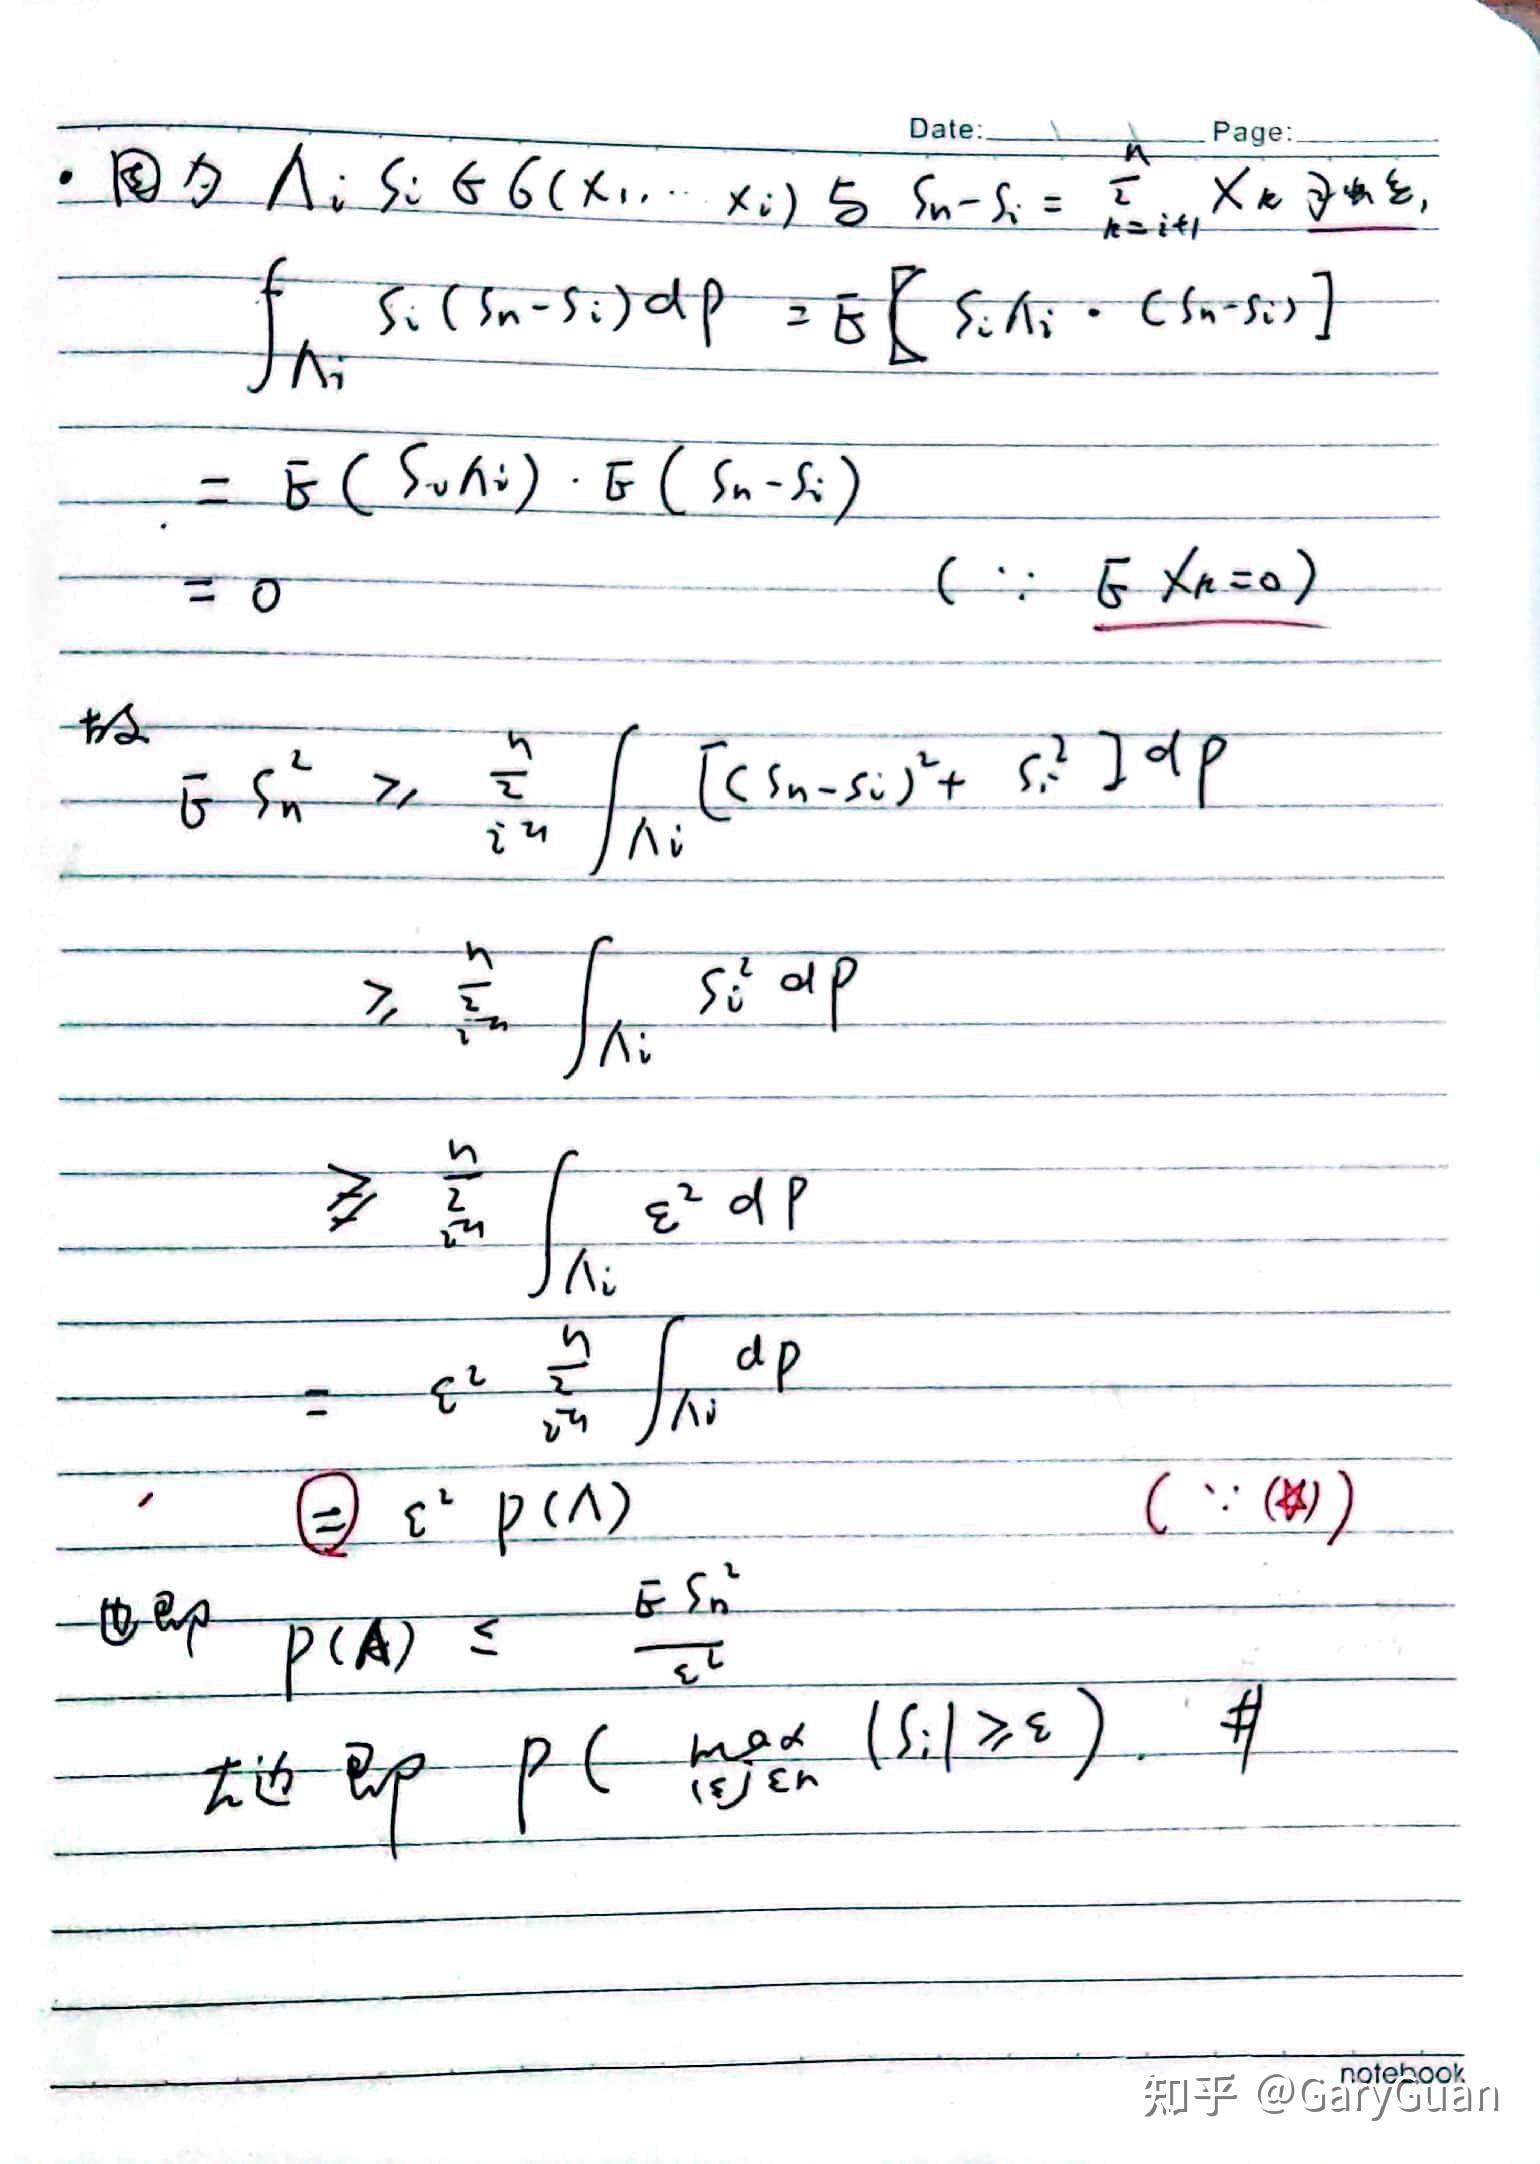 Date: Page:
· 因为 Λi Si ∈ σ(X1, ... Xi) 与 Sn-Si = Σ_{k=i+1}^{n} Xk 独立,
∫_{Λi} Si(Sn-Si)dP = E[SiΛi · (Sn-Si)]
= E(SiΛi) · E(Sn-Si)
= 0 (∵ E Xk=0)
故
E Sn² ≥ Σ_{i=1}^{n} ∫_{Λi} [(Sn-Si)² + Si²]dP
≥ Σ_{i=1}^{n} ∫_{Λi} Si² dP
≥ Σ_{i=1}^{n} ∫_{Λi} ε² dP
= ε² Σ_{i=1}^{n} ∫_{Λi} dP
= ε² P(Λ) (∵ (☆))
也即 P(Λ) ≤ E Sn² / ε²
左边即 P( max_{1≤j≤n} |Si| ≥ ε ). #
notebook
知乎 @GaryGuan